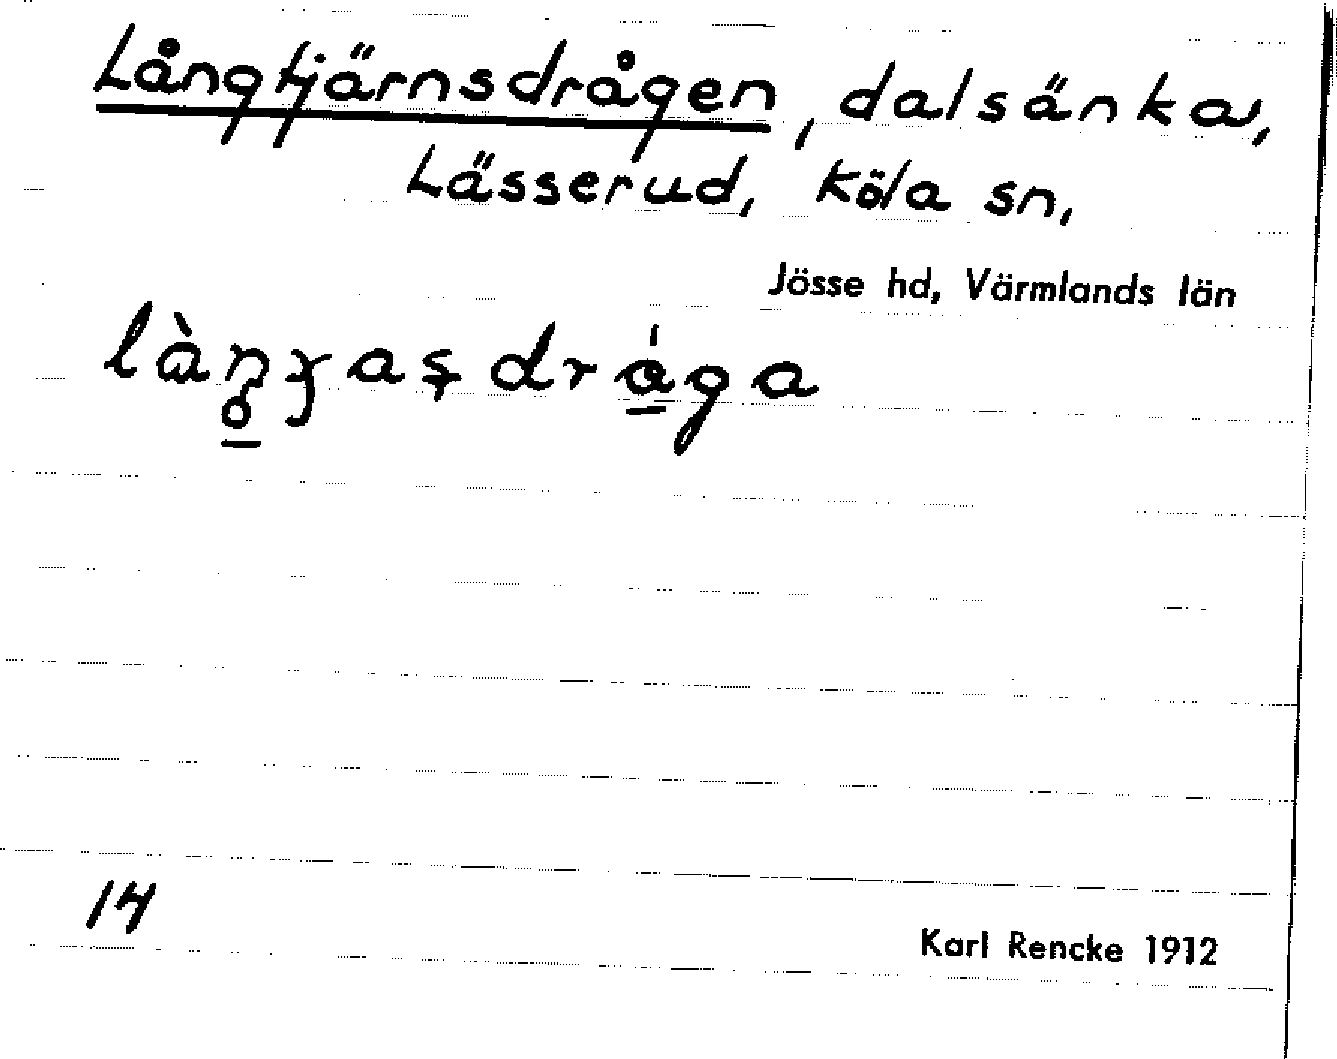 Långtjärnsdrågen, dalsänka,
Lässerud, Köla sn,
Jösse hd, Värmlands län
14
Karl Rencke 1912